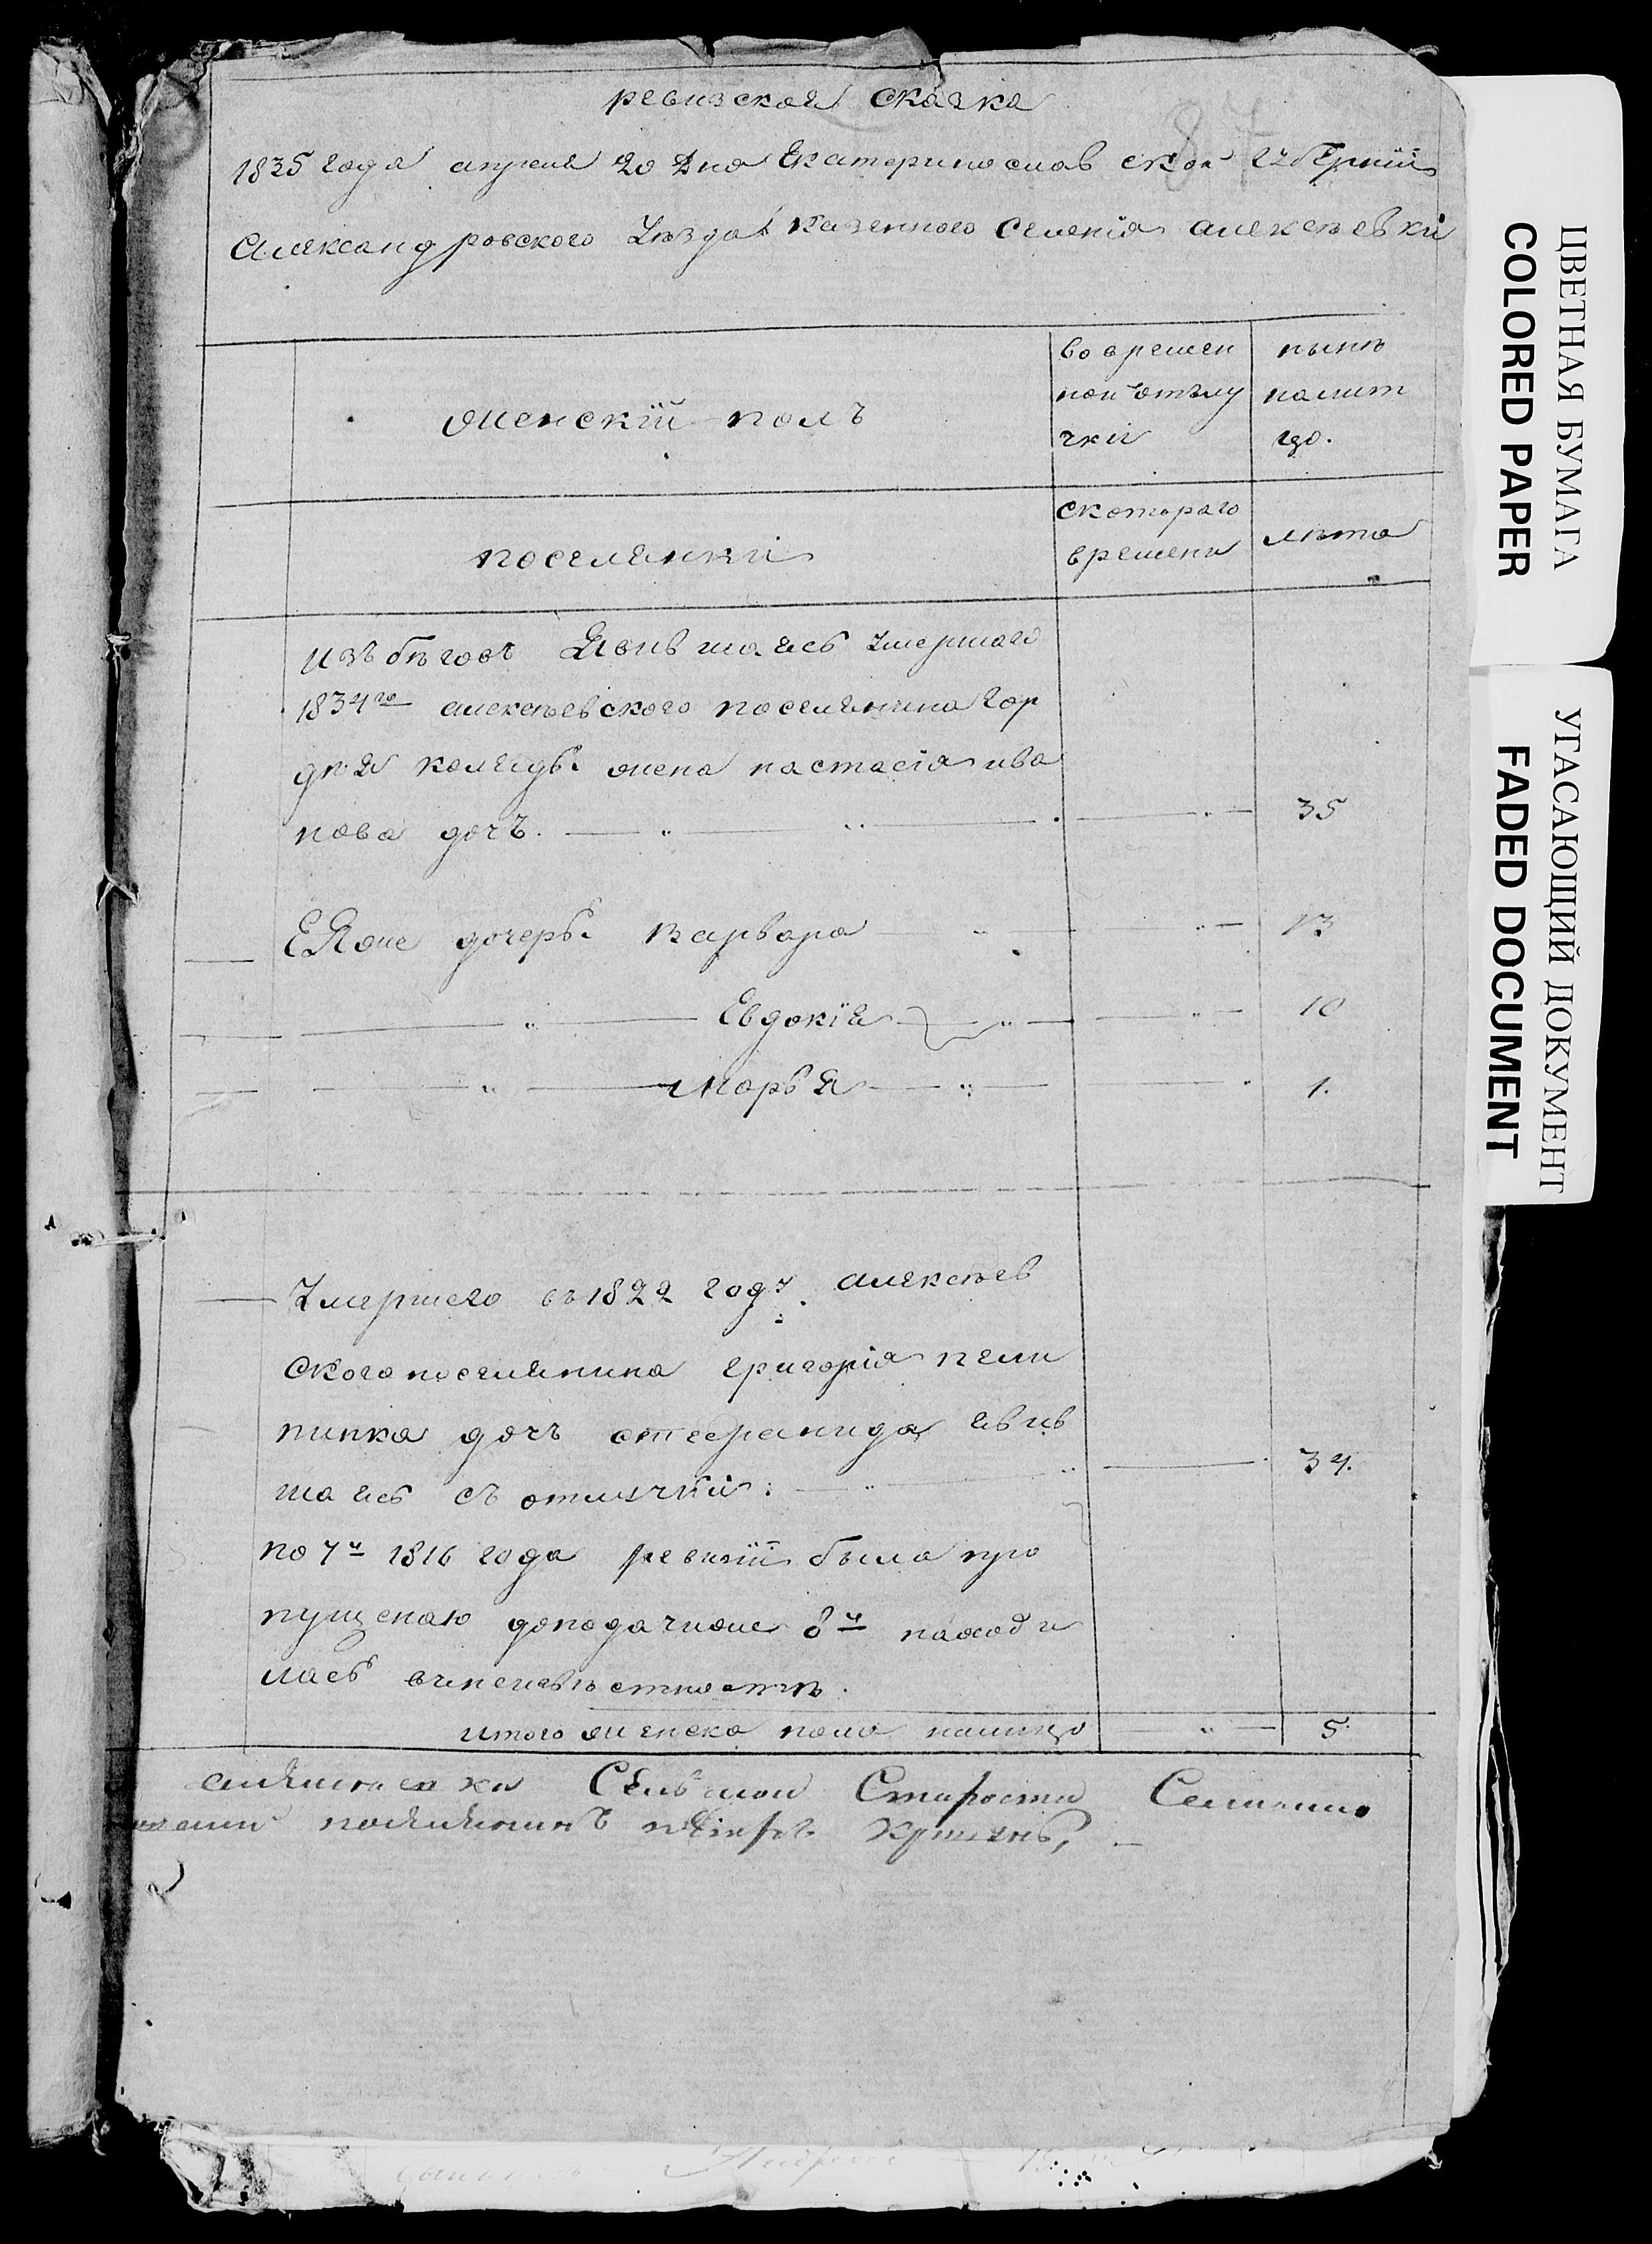 ревизская сказка
87
1835 года апреля 20 дня Екатеринославской губерніи
Александровского уѣзда казенного селенія алексѣевки
женскій полъ
во времен
ной отлу
чки
нынѣ
налит
цо.
поселянки
скотораго
времени
лѣта
изъ бѣговъ Явившаясь умершаго
1834го алексѣевского поселянина гор
дѣя коляды жена настасія ива
нова дочъ. 35
ЕЯ же дочерь варвара 13
Евдокія 10
марья 1.
Умершего въ 1822 году алексѣев
ского поселянина григорія
нинка дочъ явив
шаясь съ отлучки: 34.
по 7й 1816 года ревизіи была про
пущеною доподачиже 8й находи
лась
итого женска пола налицо 5
Сельской Старости
ЦВЕТНАЯ БУМАГА
COLORED PAPER
УГАСАЮЩИЙ ДОКУМЕНТ
FADED DOCUMENT